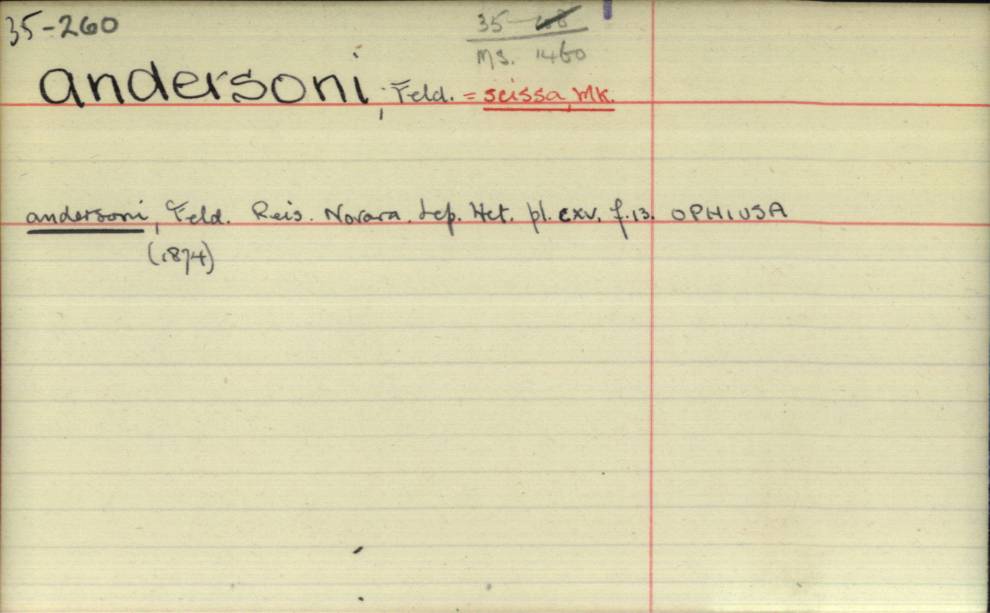 35-260
35-
MS. 1460
andersoni, Feld. = scissa, Mk.
andersoni, Feld. Reis. Novara. Lep. Het. pl. cxv. f.13. OPHIUSA
(1874)